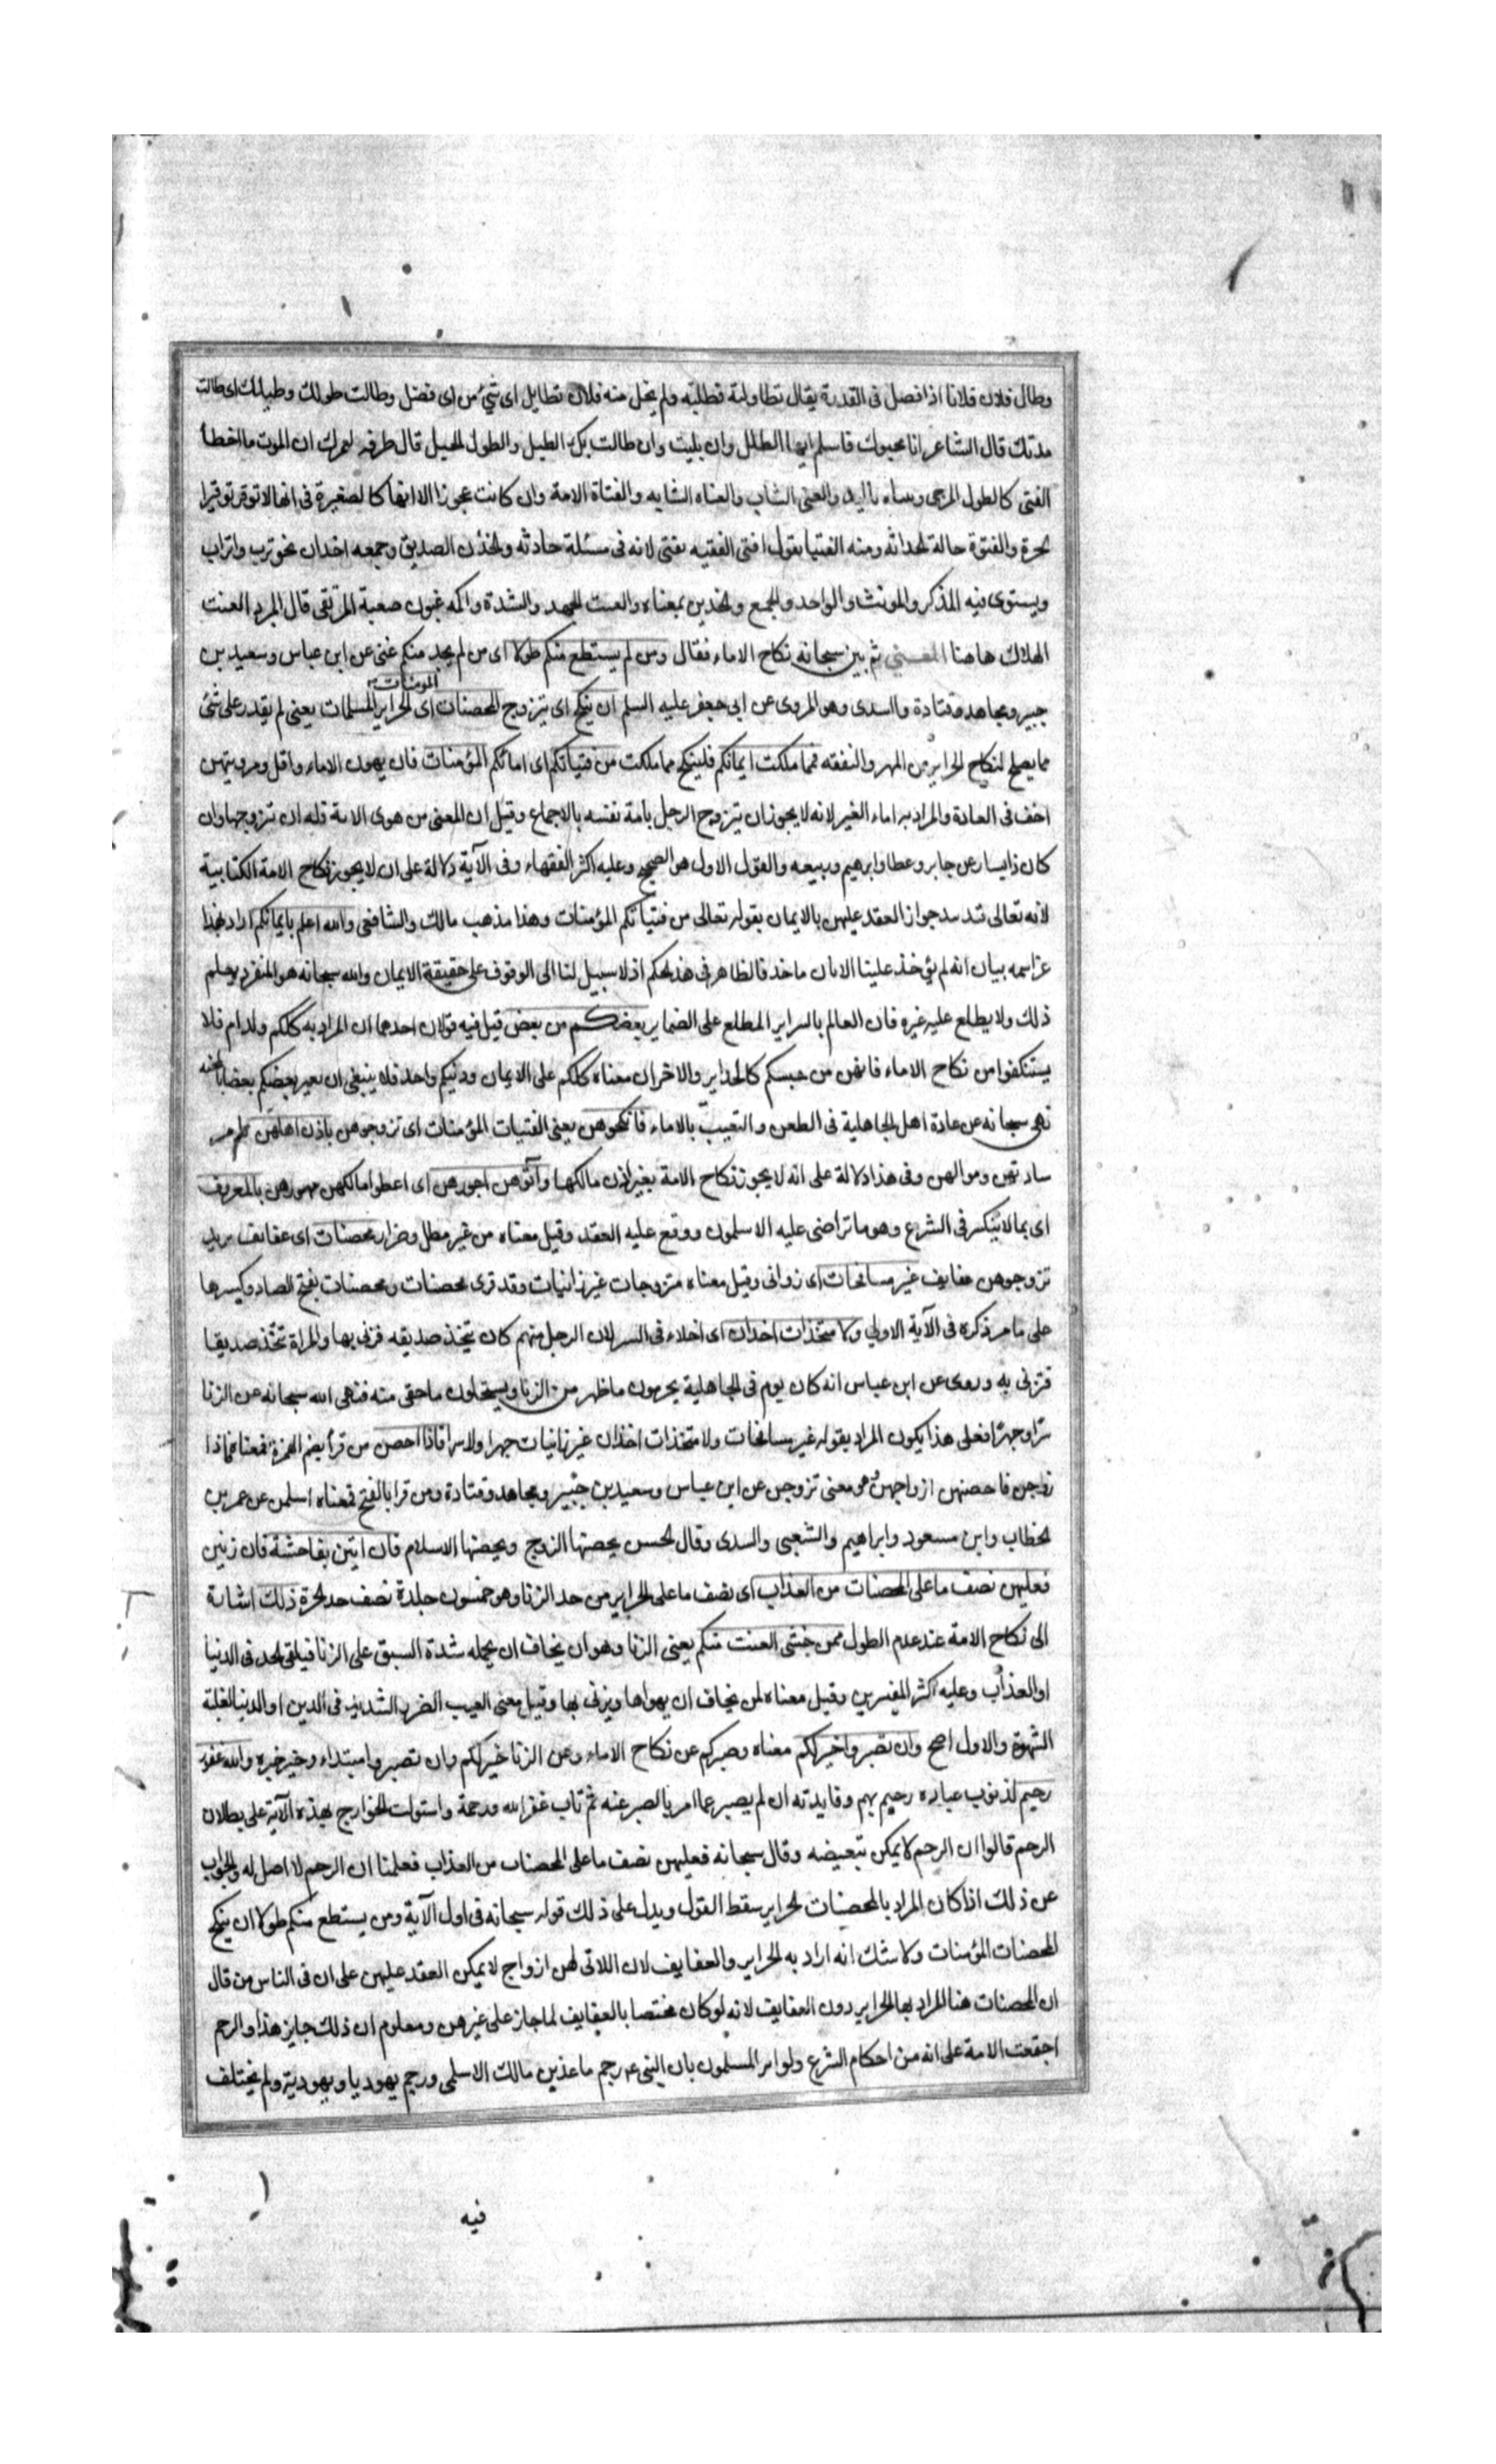 وطال فلان فلانا اذا فضل فى القدرة يقال تطاولنه فطلته ولم يحل منه فلان تطايل اى شئ من اى فضل وطالت طولك وطيلك اى طالت
مدتك قال الشاعر انا محيوك فاسلم ايها الطلل وان بليت وان طالت بك الطيل والطول الحبل قال طرفه لعمرك ان الموت ما اخطأ
الفتى كالطول المرخى وثنياه باليد والفتى الشاب والفتاه الشابه والفتاة الامة وان كانت عجوزا الا انها كالصغيرة فى انها لا توقر توقير
الحرة والفتوة حالة الحداثه ومنه الفتيا بقول افتى الفقيه يفتى لانه فى مسئلة حادثه والخدن الصديق وجمعه اخدان نحو ترب واتراب
ويستوى فيه المذكر والمونث والواحد والجمع والخدين بمعناه والعنت الجهد والشدة واكمه عنوت صعبة المرتقى قال المبرد العنت
الهلاك هاهنا المعنى ثم بين سبحانه نكاح الاماء فقال ومن لم يستطع منكم طولا اى من لم يجد منكم غنى عن ابن عباس وسعيد بن
جبير ومجاهد وقتادة والسدى وهو المروى عن ابى جعفر عليه السلم ان ينكح اى يتزوج المحصنات المومنات اى الحراير المسلمات يعنى لم يقدر على شئ
مما يصلح لنكاح الحراير من المهر والنفقه فمما ملكت ايمانكم فلينكح مما ملكت من فتياتكم اى امائكم المؤمنات فان مهور الاماء واقل ومرونتهن
اخف فى العادة والمراد به اماء الغير لانه لا يجوز ان يتزوج الرجل بامة نفسه بالاجماع وقيل ان المعنى من هوى الامة فله ان يتزوجها وان
كان ذا يسار عن جابر وعطا وابرهيم وربيعه والقول الاول هو الصحيح وعليه اكثر الفقهاء وفى الآية دلالة على ان لا يجوز نكاح الامة الكتابية
لانه تعالى قيد جواز العقد عليهن بالايمان بقوله تعالى من فتياتكم المؤمنات وهذا مذهب مالك والشافعى والله اعلم بايمانكم اراد بهذا
عز اسمه بيان انه لم يؤخذ علينا الا بان ناخذ فالظاهر فى هذا الحكم اذ لا سبيل لنا الى الوقوف على حقيقة الايمان والله سبحانه هو المنفرد بعلم
ذلك ولا يطلع عليه غيره فان العالم بالسراير المطلع على الضماير بعضكم من بعض قيل فيه قولان احدهما ان المراد به كلكم ولد ادم فلا
يستنكفوا من نكاح الاماء فانهن من جنسكم كالحراير والاخر ان معناه كلكم على الايمان ودينكم واحد فلا ينبغى ان يعير بعضكم بعضا بالهجنه
نهى سبحانه عن عادة اهل الجاهلية فى الطعن والتعيب بالاماء فانكحوهن يعنى الفتيات المؤمنات اى تزوجوهن باذن اهلهن
ساداتهن ومواليهن وفى هذا دلالة على انه لا يجوز نكاح الامة بغير اذن مالكها وآتوهن اجورهن اى اعطوا مالكهن مهورهن بالمعروف
اى بما لا ينكر فى الشرع وهو ما تراضى عليه الاسلمون ووقع عليه العقد وقيل معناه من غير مطل وضرار محصنات اى عفايف يريد
تزوجوهن عفايف غير مسافحات اى زوانى وقيل معناه متزوجات غير زانيات وقد قرى محصنات ومحصنات بفتح الصاد وكسرها
على ما مر ذكره فى الآية الاولى ولا متخذات اخدان اى اخلاء فى السر لان الرجل منهم كان يتخذ صديقه فزنى بها والمراة تتخذ صديقا
فتزنى به وروى عن ابن عباس انه كان يوم فى الجاهلية يحرمون ما ظهر من الزنا ويستحلون ما خفى منه فنهى الله سبحانه عن الزنا
سرا وجهرا فعلى هذا يكون المراد بقوله غير مسافحات ولا متخذات اخدان غير زانيات جهرا ولا سرا فاذا احصن من قرأ بضم الهمزة فمعناه فاذا
زوجن فاحصنهن ازواجهن هو معنى تزوجن عن ابن عباس وسعيد بن جبير ومجاهد وقتادة ومن قرا بالفتح فمعناه اسلمن عن عمر بن
الخطاب وابن مسعود وابراهيم والشعبى والسدى وقال الحسن يحصنها الزوج ويحصنها الاسلام فان اتين بفاحشة فان زنين
فعليهن نصف ما على المحصنات من العذاب اى نصف ما على الحراير من حد الزنا وهو خمسون جلدة نصف حد الحرة ذلك اشارة
الى نكاح الامة عند عدم الطول لمن خشى العنت منكم يعنى الزنا وهو ان يخاف ان يحمله شدة السبق على الزنا فيلقى الحد فى الدنيا
او العذاب وعليه اكثر المفسرين وقيل معناه لمن يخاف ان يهواها ويزنى بها وقيل معنى العيب الضرر الشديد فى الدين او الدنيا لغلبة
الشهوة والاول اصح وان تصبروا خير لكم معناه وصبركم عن نكاح الاماء وعن الزنا خير لكم وان تصبروا مبتداء وخير خبره والله غفور
رحيم لذنوب عباده رحيم بهم وفايدته ان لم يصبر عما امر بالصبر عنه ثم تاب غفر الله ورحمة واستدلت الخوارج بهذه الآية على بطلان
الرجم قالوا ان الرجم لا يمكن تبعيضه وقال سبحانه فعليهن نصف ما على المحصنات من العذاب فعلمنا ان الرجم لا اصل له والجواب
عن ذلك اذا كان المراد بالمحصنات الحراير سقط القول ويدل على ذلك قوله سبحانه فى اول الآية ومن يستطع منكم طولا ان ينكح
المحصنات المؤمنات ولا شك انه اراد به الحراير والعفايف لان اللاتى لهن ازواج لا يمكن العقد عليهن على ان فى الناس من قال
ان المحصنات هنا المراد بها الحراير دون العفايف لانه لو كان مختصا بالعفايف لما جاز على غيرهن ومعلوم ان ذلك جايز هذا والرجم
اجتمعت الامة على انه من احكام الشرع وتواتر المسلمون بان النبى ص رجم ماعذ بن مالك الاسلمى ورجم يهوديا ويهودية ولم يختلف
فيه